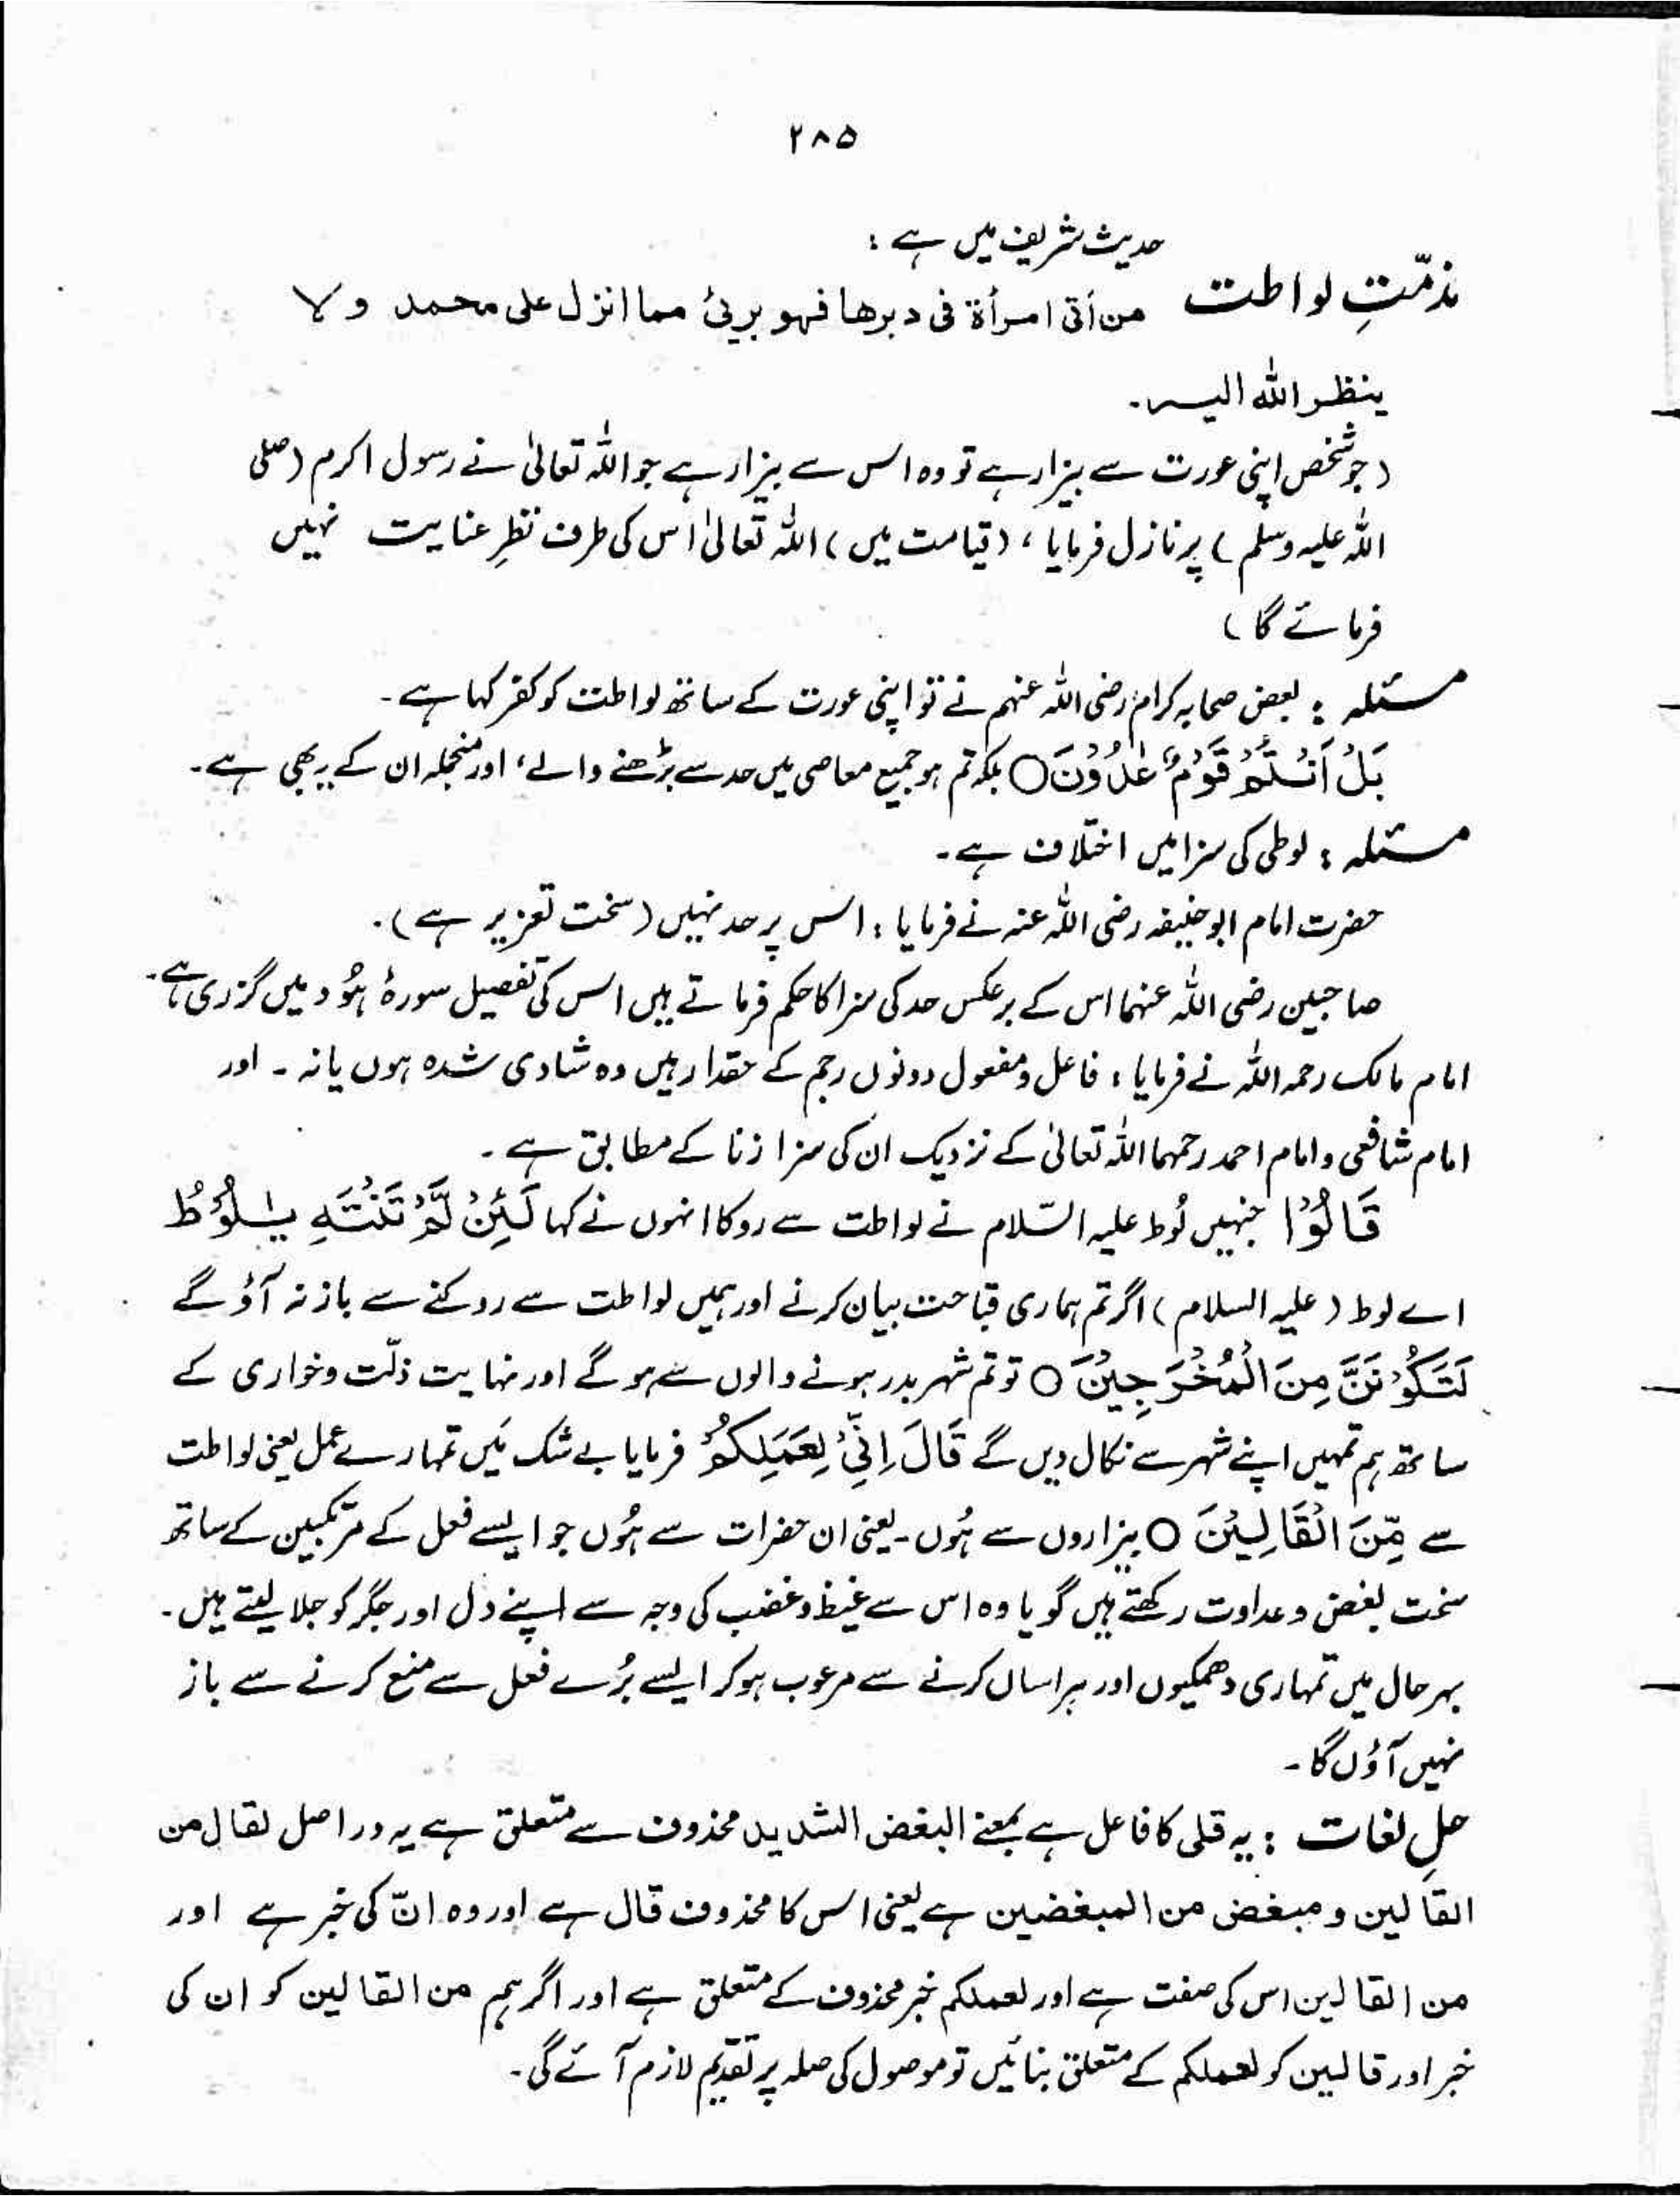 ۲۸۵
حدیث شریف میں ہے :
مذمّتِ لواطت من أتی امرأة فی دبرها فهو بریئ مما انزل علی محمد ولا
ینظر الله الیه۔
(جو شخص اپنی عورت سے بیزار ہے تو وہ اس سے بیزار ہے جو اللہ تعالیٰ نے رسول اکرم (صلی
اللہ علیہ وسلم) پر نازل فرمایا ، (قیامت میں) اللہ تعالیٰ اس کی طرف نظرِ عنایت نہیں
فرمائے گا)
مسئلہ : بعض صحابہ کرام رضی اللہ عنہم نے تو اپنی عورت کے ساتھ لواطت کو کفر کہا ہے ۔
بَلْ اَنْتُمْ قَوْمٌ عٰدُوْنَ ○ بلکہ تم ہو جمیع معاصی میں حد سے بڑھنے والے ، اور منجملہ ان کے یہ بھی ہے ۔
مسئلہ : لوطی کی سزا میں اختلاف ہے ۔
حضرت امام ابوحنیفہ رضی اللہ عنہ نے فرمایا : اس پر حد نہیں (سخت تعزیر ہے) ۔
صاحبین رضی اللہ عنہما اس کے برعکس حد کی سزا کا حکم فرماتے ہیں اس کی تفصیل سورۂ ہُود میں گزری ہے ۔
امام مالک رحمہ اللہ نے فرمایا : فاعل و مفعول دونوں رجم کے حقدار ہیں وہ شادی شدہ ہوں یا نہ ۔ اور
امام شافعی و امام احمد رحمہما اللہ تعالیٰ کے نزدیک ان کی سزا زنا کے مطابق ہے ۔
قَالُوْا جنہیں لُوط علیہ السّلام نے لواطت سے روکا انہوں نے کہا لَئِنْ لَّمْ تَنْتَهِ یٰلُوْطُ
اے لوط (علیہ السلام) اگر تم ہماری قباحت بیان کرنے اور ہمیں لواطت سے روکنے سے باز نہ آؤ گے
لَتَكُوْنَنَّ مِنَ الْمُخْرَجِیْنَ ○ تو تم شہر بدر ہونے والوں سے ہو گے اور نہایت ذلّت و خواری کے
ساتھ ہم تمہیں اپنے شہر سے نکال دیں گے قَالَ اِنِّیْ لِعَمَلِكُمْ فرمایا بے شک مَیں تمہارے عمل یعنی لواطت
سے مِّنَ الْقَالِیْنَ ○ بیزاروں سے ہُوں ۔ یعنی ان حضرات سے ہُوں جو ایسے فعل کے مرتکبین کے ساتھ
سخت بغض و عداوت رکھتے ہیں گویا وہ اس سے غیظ و غضب کی وجہ سے اپنے دل اور جگر کو جلا لیتے ہیں ۔
بہر حال میں تمہاری دھمکیوں اور ہراساں کرنے سے مرعوب ہو کر ایسے بُرے فعل سے منع کرنے سے باز
نہیں آؤں گا ۔
حلِ لغات : یہ قلی کا فاعل ہے بمعنے البغض الشدید محذوف سے متعلق ہے یہ دراصل لقال من
القالین و مبغض من المبغضین ہے یعنی اس کا محذوف قال ہے اور وہ انّ کی خبر ہے اور
من القالین اس کی صفت ہے اور لعملکم خبر محذوف کے متعلق ہے اور اگر ہم من القالین کو ان کی
خبر اور قالین کو لعملکم کے متعلق بنائیں تو موصول کی صلہ پر تقدیم لازم آئے گی ۔